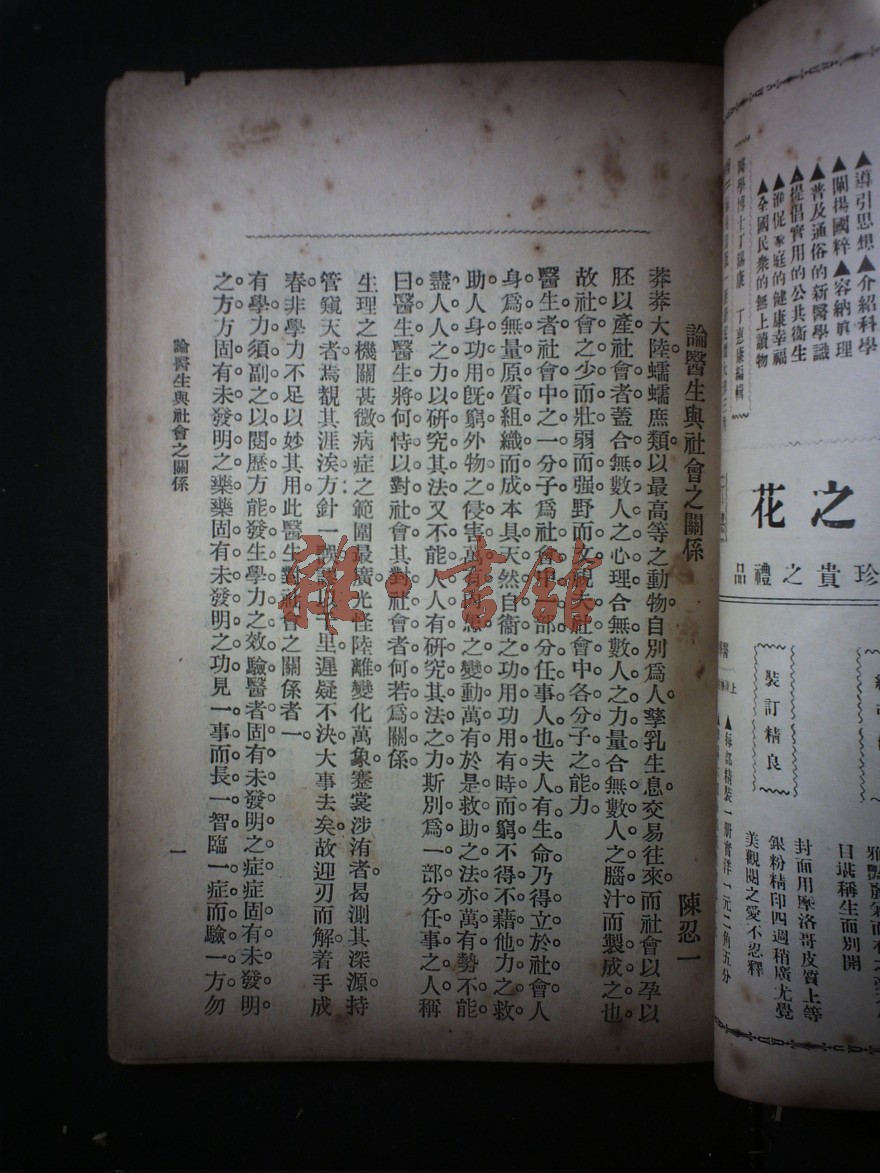 ▲導引思想▲介紹科學
▲闡揚國粹▲容納眞理
▲普及通俗的新醫學識
▲提倡實用的公共衞生
▲催促家庭的健康幸福
▲全國民衆的無上讀物
醫學博士丁錫康 丁惠康編輯
之花
珍貴之禮品
裝訂精良
目堪稱生面別開
封面用摩洛哥皮質上等
銀粉精印四週稍廣尤覺
美觀閱之愛不忍釋
▲每部精裝一册實洋一元二角五分
論醫生與社會之關係 陳忍一
莽莽大陸蠕蠕庶類以最高等之動物自別爲人孳乳生息交易往來而社會以孕以
胚以產社會者蓋合無數人之心理合無數人之力量合無數人之腦汁而製成之也
故社會之少而壯弱而强野而文視夫社會中各分子之能力
醫生者社會中之一分子爲社會中一部分任事人也夫人有生命乃得立於社會人
身爲無量原質組織而成本具天然自衞之功用功用有時而窮不得不藉他力之救
助人身功用旣窮外物之侵害萬有內怨之變動萬有於是救助之法亦萬有勢不能
盡人人之力以研究其法又不能人人有研究其法之力斯別爲一部分任事之人稱
曰醫生醫生將何恃以對社會其對社會者何若爲關係
生理之機關甚微病症之範圍最廣光怪陸離變化萬象蹇裳涉洧者曷測其深源持
管窺天者焉覩其涯涘方針一誤謬以千里遲疑不決大事去矣故迎刃而解着手成
春非學力不足以妙其用此醫生對社會之關係者一
有學力須副之以閱歷方能發生學力之效驗醫者固有未發明之症症固有未發明
之方方固有未發明之藥藥固有未發明之功見一事而長一智臨一症而驗一方勿
論醫生與社會之關係
一
雜·書館